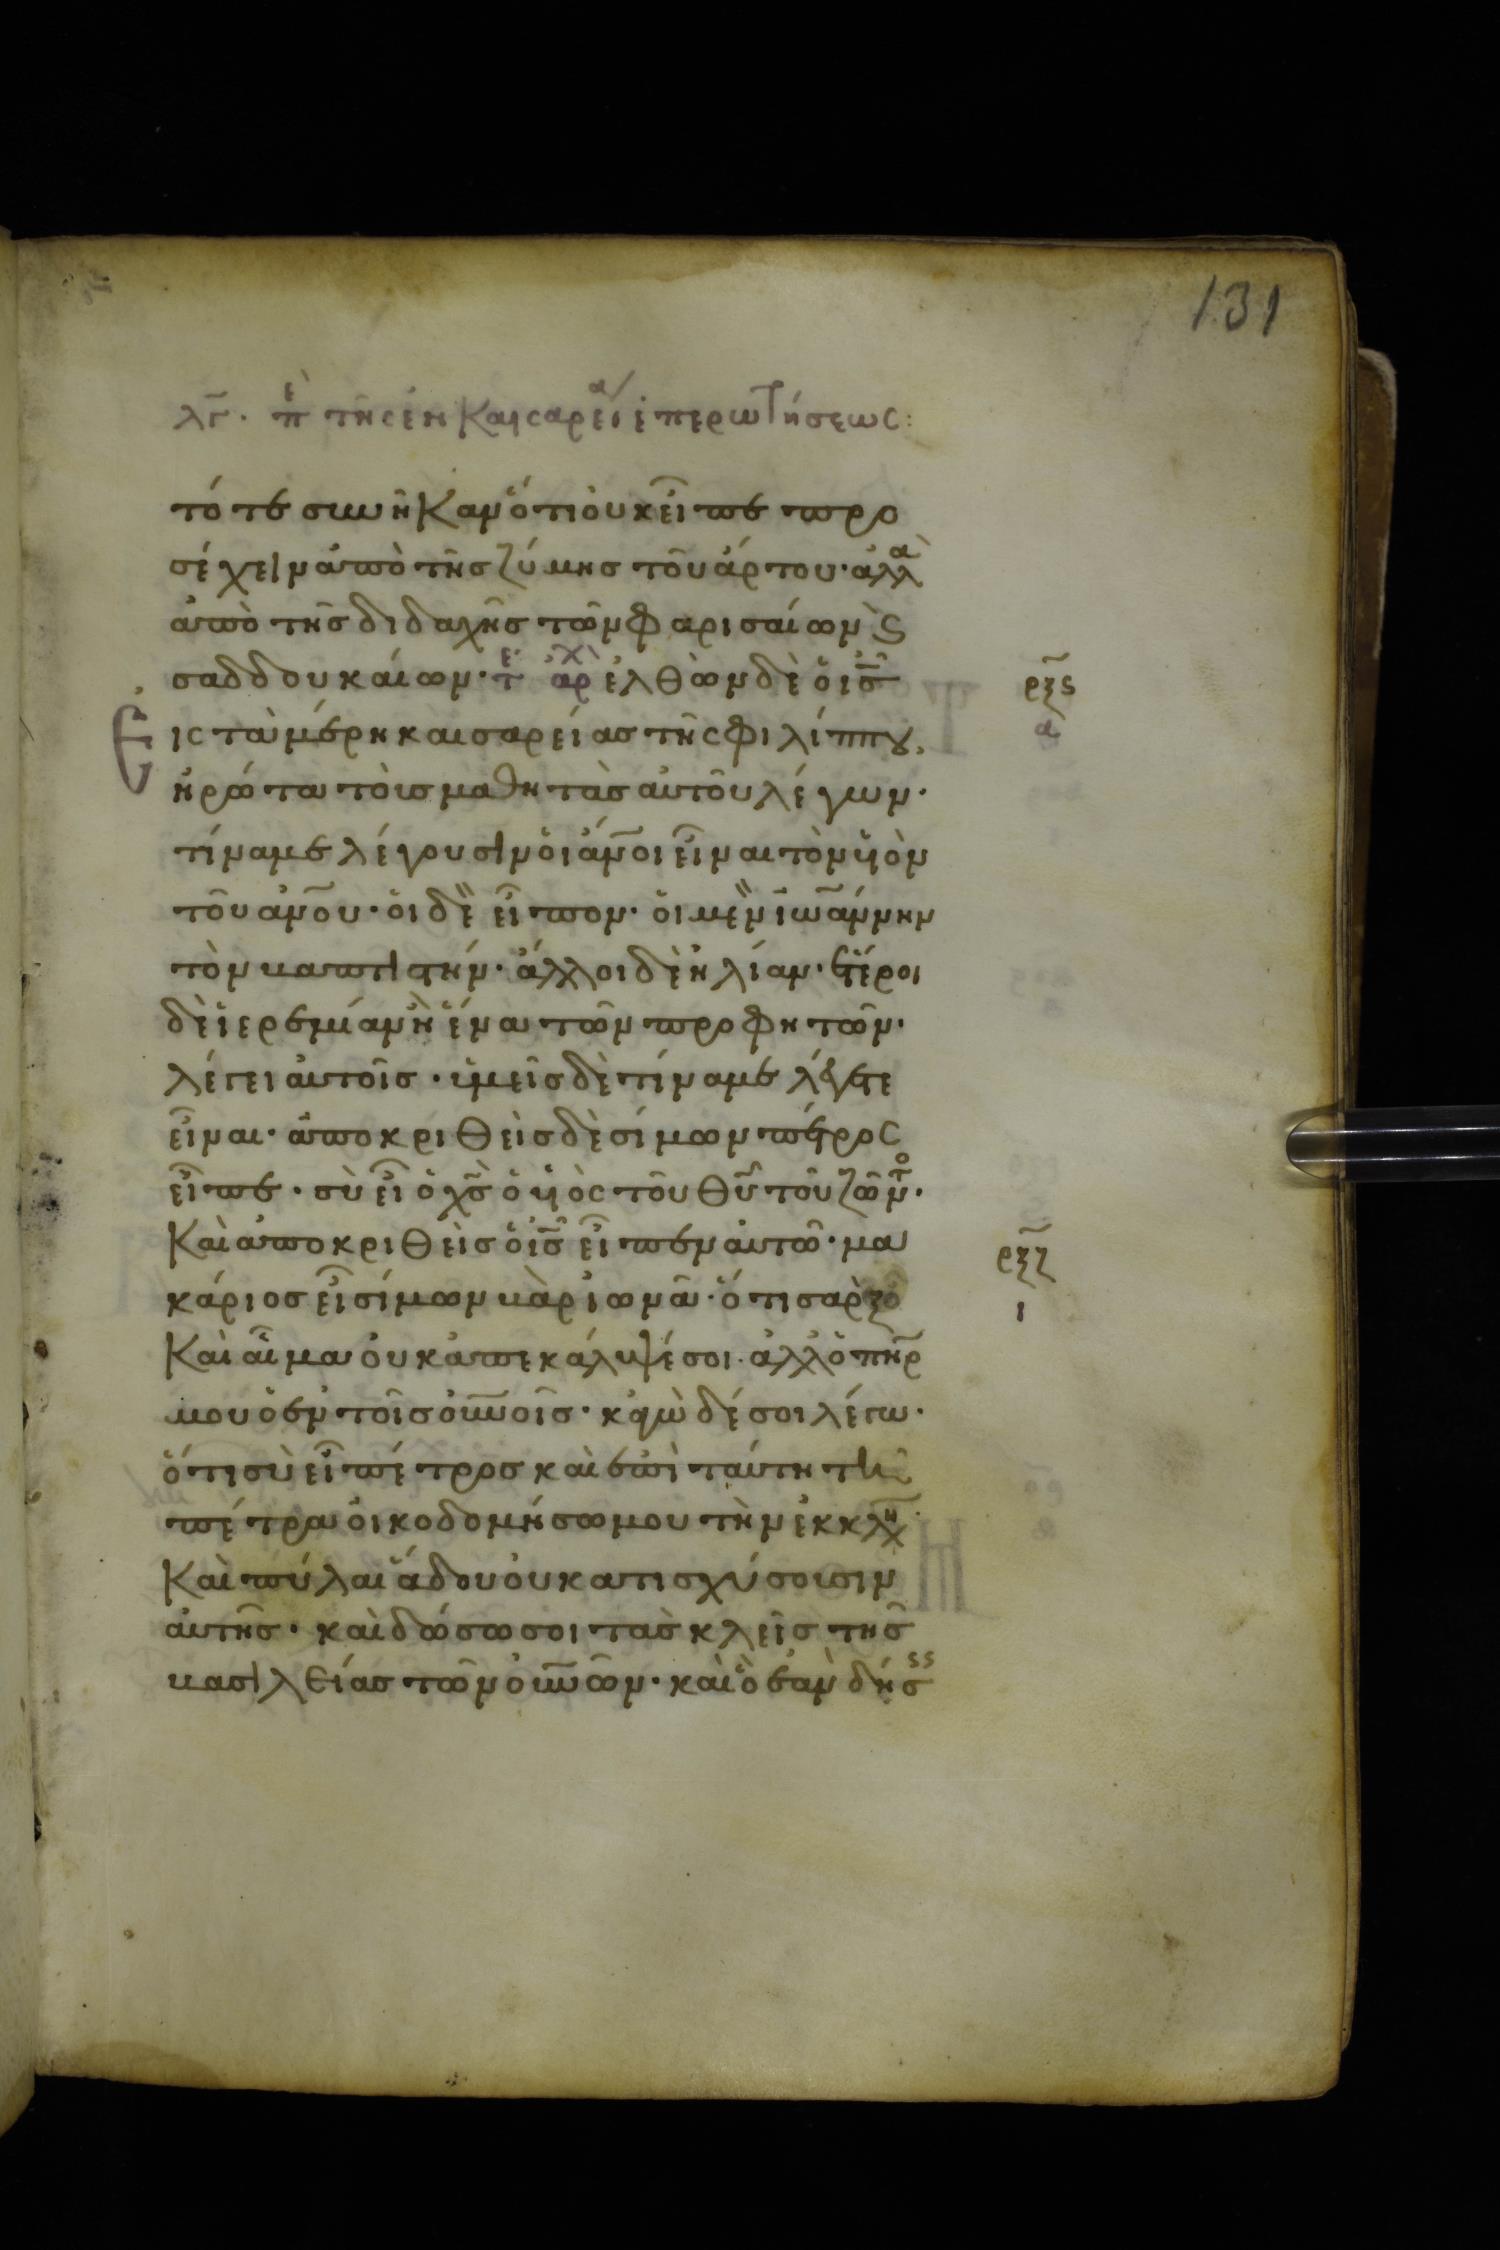 131
λγ̅· πὲ τῆς ἐν Καισαρεί(α) ἐπερωτήσεως:
τότε συνῆκαν ὅτι οὐκ εἶπε προ
σέχειν ἀπὸ τῆς ζύμης τοῦ ἄρτου· ἀλλὰ
ἀπὸ τῆς διδαχῆς τῶν φαρισαίων ϗ
σαδδουκαίων· τε̇ ἀρχ ἐλθὼν δὲ ὁ ις̅
ρξ̅ϛ
Ε ις τὰ μέρη καισαρείας τῆς φιλίππου,
α
ἠρώτα τοὺς μαθητὰς αὐτοῦ λέγων·
τίνα με λέγουσιν οἱ ἄν̅οι εἶναι τὸν υἱὸν
τοῦ ἀν̅ου· οἱ δὲ εἶπον· οἱ μὲν ἰω̅άννην
τὸν βαπτιστήν· ἄλλοι δὲ ἠλίαν· ἕτεροι
δὲ ἱερεμίαν ἢ ἕνα τῶν προφητῶν·
λέγει αὐτοῖς· ὑμεῖς δὲ τίνα με λέγετε
εἶναι· ἀποκριθεὶς δὲ σίμων πέτρος
εἶπε· σὺ εἶ ὁ χς̅ ὁ υἱὸς τοῦ θυ̅ τοῦ ζῶντο·
Καὶ ἀποκριθεὶς ὁ ις̅ εἶπεν αὐτῶ· μα
ρξ̅ζ
κάριος εἶ σίμων βὰρ ἰωνᾶ· ὅτι σὰρξ
ι
Καὶ αἷμα οὐκ ἀπεκάλυψέ σοι· ἀλλ' ὁ πη̅ρ
μου ὁ ἐν τοῖς οὐ̅νοῖς· κἀγὼ δέ σοι λέγω·
ὅτι σὺ εἶ πέτρος καὶ ἐπὶ ταύτη τῆ
πέτρα οἰκοδομήσω μου τὴν ἐκκλη̅
Καὶ πύλαι ἅδου οὐ κατισχύσουσιν
αὐτῆς· καὶ δώσω σοι τὰς κλεῖς τῆς
βασιλείας τῶν οὐ̅νῶν· καὶ ὃ ἐὰν δήσ